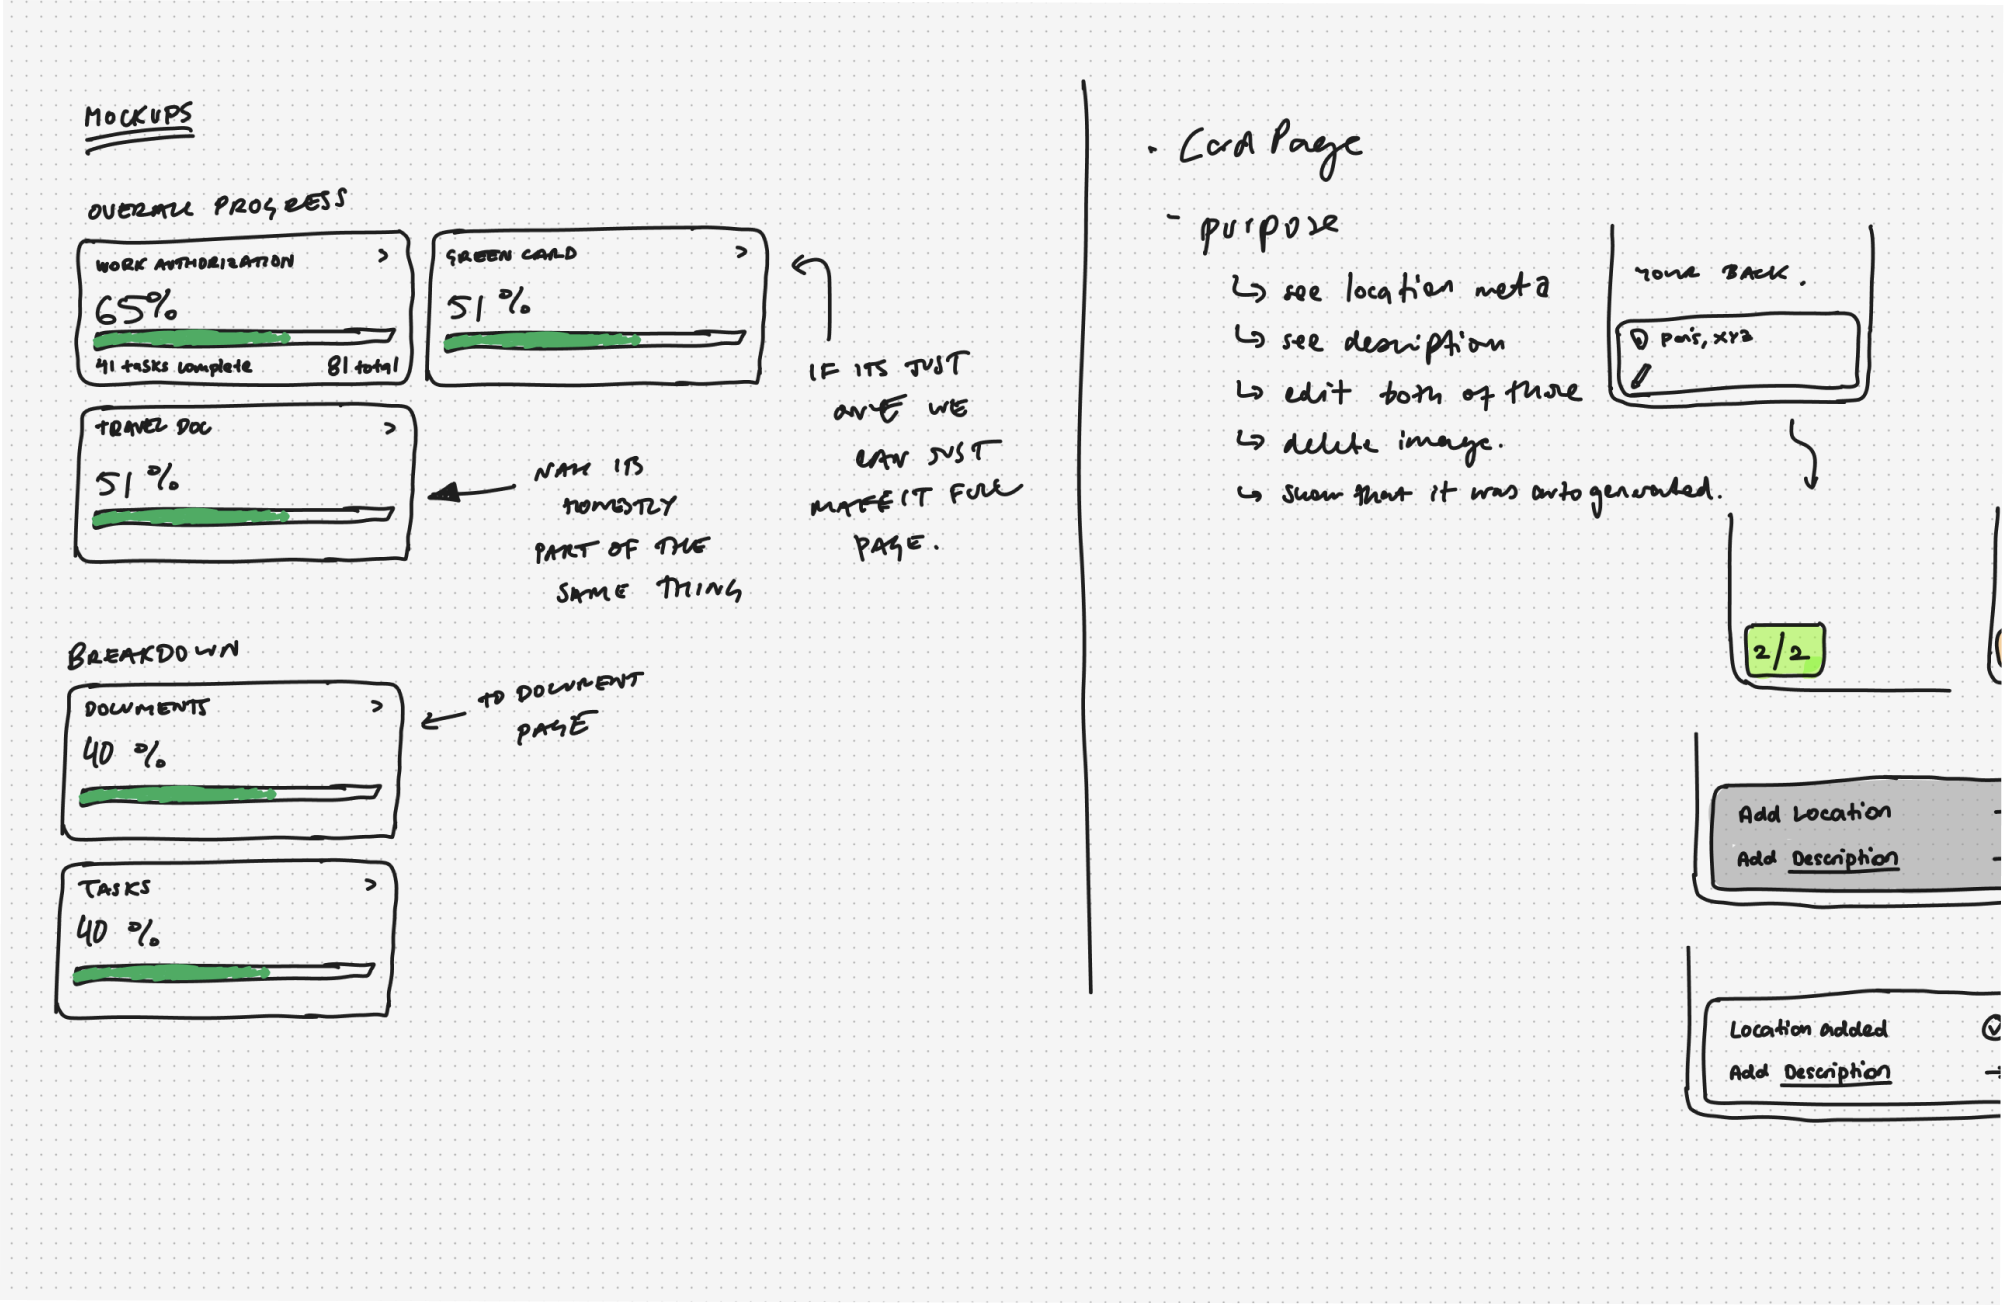 MOCKUPS
OVERALL PROGRESS
WORK AUTHORIZATION >
65%
41 tasks complete 81 total
GREEN CARD >
51 %
IF ITS JUST
ONE WE
CAN JUST
MAKE IT FULL
PAGE.
TRAVEL DOC >
51 %
NAH ITS
HONESTLY
PART OF THE
SAME THING
BREAKDOWN
DOCUMENTS >
40 %
TO DOCUMENT
PAGE
TASKS >
40 %
· Card Page
- purpose
↳ see location meta
↳ see description
↳ edit both of those
↳ delete image.
↳ show that it was auto generated.
YOUR BACK.
paris, xyz
2/2
Add Location
Add Description
Location added
Add Description